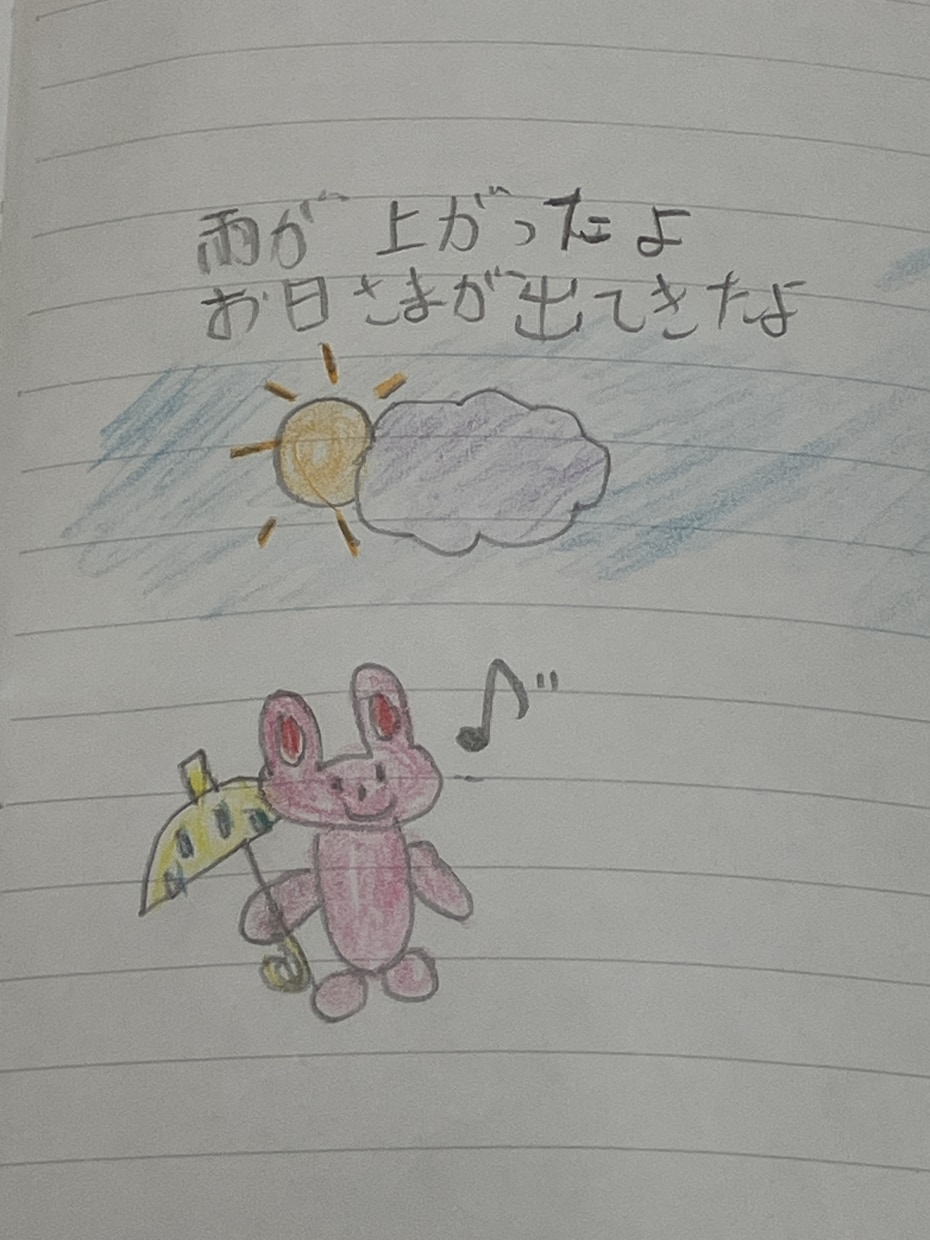 雨が 上がったよ
お日さまが出てきたよ